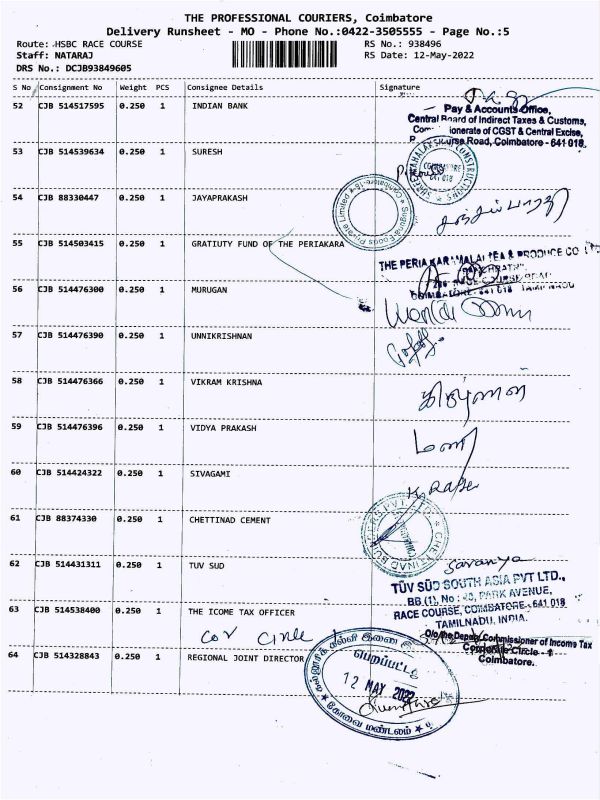 THE PROFESSIONAL COURIERS, Coimbatore
Delivery Runsheet - MO - Phone No.:0422-3505555 - Page No.:5
Route: HSBC RACE COURSE RS No.: 938496
Staff: NATARAJ RS Date: 12-May-2022
DRS No.: DCJB93849605
S No Consignment No Weight PCS Consignee Details Signature
52 CJB 514517595 0.250 1 INDIAN BANK
Pay & Accounts Office,
Central Board of Indirect Taxes & Customs,
ionerate of CGST & Central Excise,
Road, Coimbatore - 641 018.
53 CJB 514539634 0.250 1 SURESH
SHREE MAHALAKSHMI CONSTRUCTIONS
641 018
54 CJB 88330447 0.250 1 JAYAPRAKASH
Suguna Foods Private Limited * Coimbatore-18 *
55 CJB 514503415 0.250 1 GRATIUTY FUND OF THE PERIAKARA
THE PERIA KARAMALAI TEA & PRODUCE CO LTD
COIMBATORE - 641 018 TAMILNADU
56 CJB 514476300 0.250 1 MURUGAN
57 CJB 514476390 0.250 1 UNNIKRISHNAN
58 CJB 514476366 0.250 1 VIKRAM KRISHNA
59 CJB 514476396 0.250 1 VIDYA PRAKASH
மணி
60 CJB 514424322 0.250 1 SIVAGAMI
61 CJB 88374330 0.250 1 CHETTINAD CEMENT
CHETTINAD BUILDERS PVT. LTD.
62 CJB 514431311 0.250 1 TUV SUD
Saranya
TÜV SÜD SOUTH ASIA PVT LTD.,
6B (1), No : 20, PARK AVENUE,
RACE COURSE, COIMBATORE - 641 018
TAMILNADU, INDIA.
63 CJB 514538400 0.250 1 THE ICOME TAX OFFICER
Cor Circle 1
O/o the Deputy Commissioner of Income Tax
Corporate Circle - 1
Coimbatore.
64 CJB 514328843 0.250 1 REGIONAL JOINT DIRECTOR
கல்லூரிக் கல்வி இணை
பெறப்பட்டது
12 MAY 2022
கோவை மண்டலம்